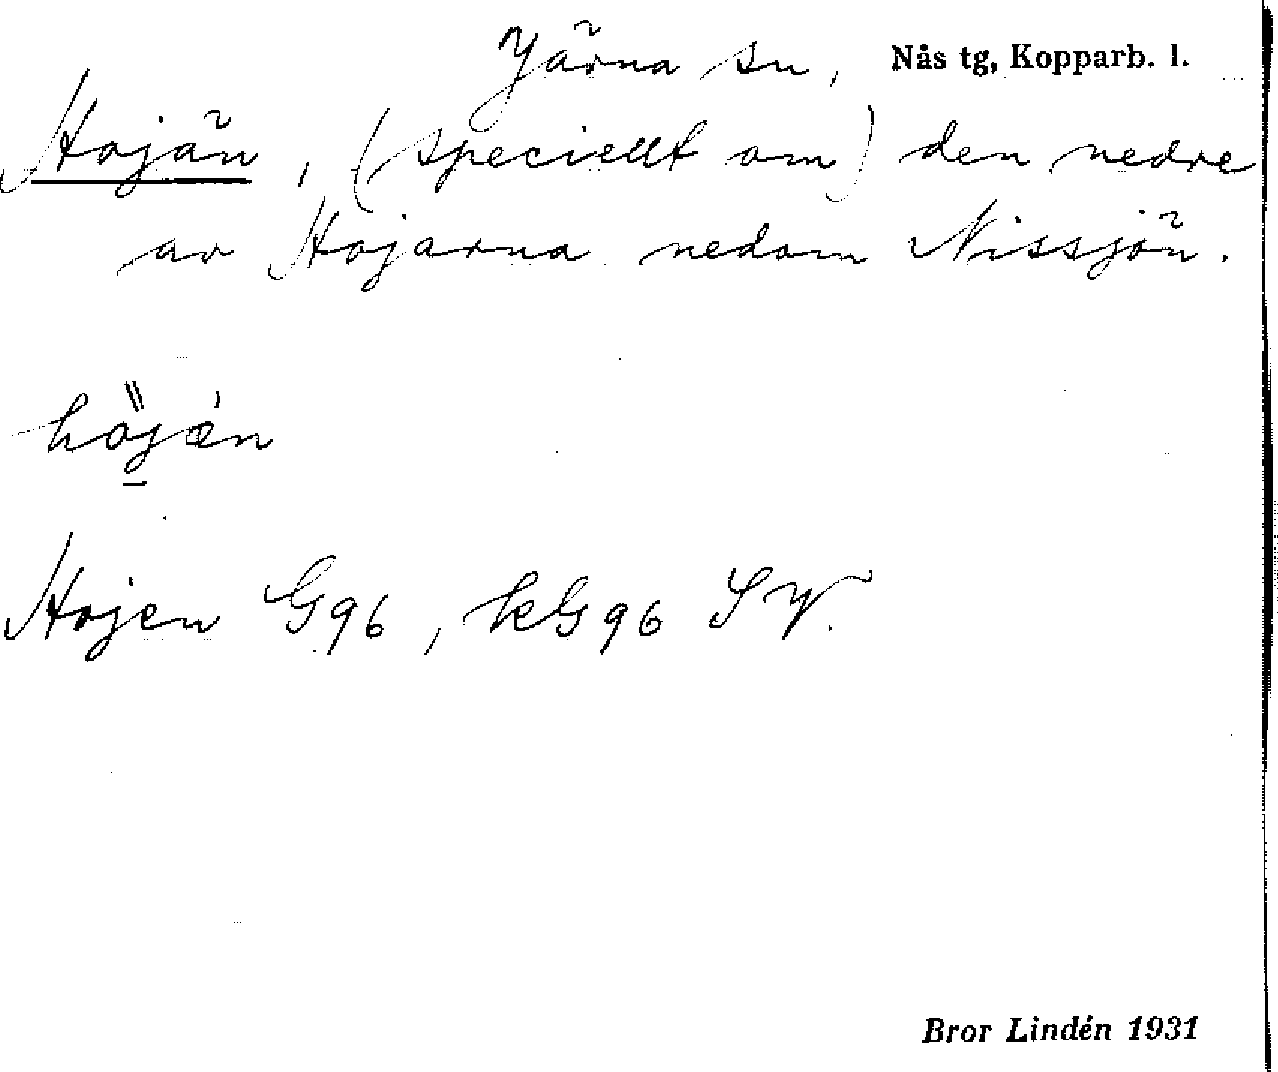 Järna sn, Nås tg, Kopparb. l.
Hojän, (speciellt om) den nedre
av Hojarna nedom Nissjön.
höjǽn
Hojen G96, kG96 SV.
Bror Lindén 1931